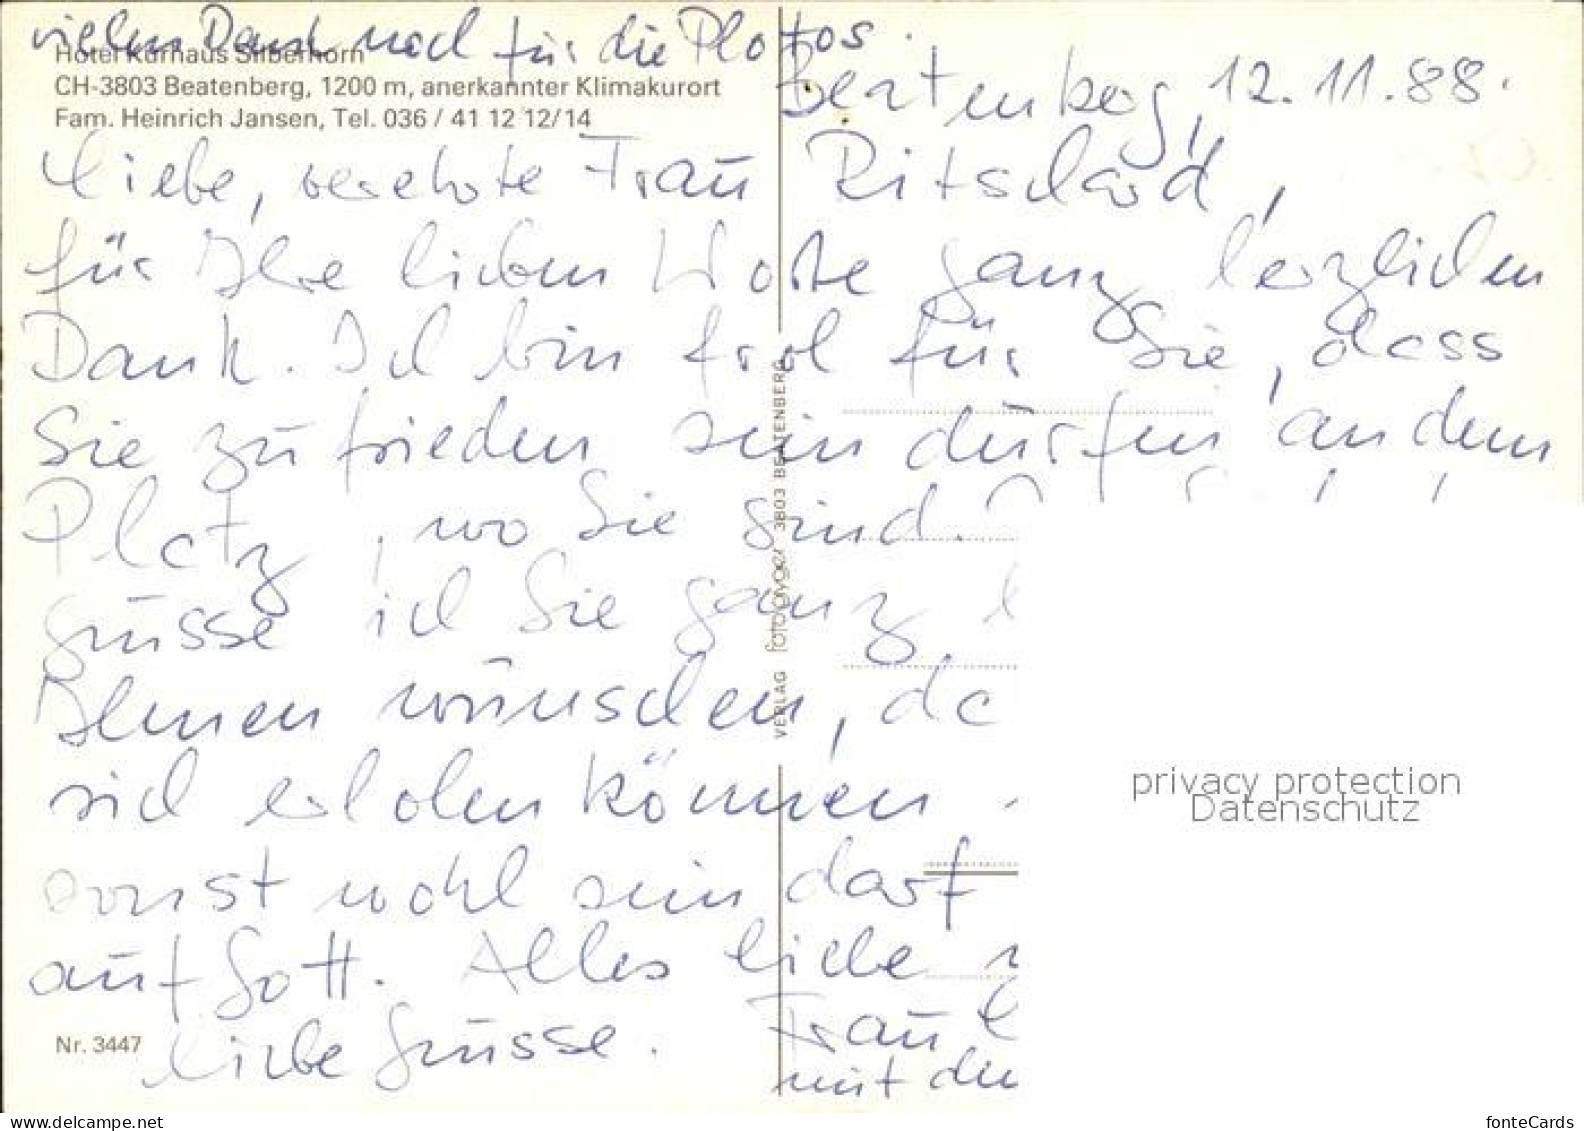 vielen Dank noch für die Photos.
Hotel Kurhaus Silberhorn
CH-3803 Beatenberg, 1200 m, anerkannter Klimakurort
Fam. Heinrich Jansen, Tel. 036 / 41 12 12/14
Beatenberg, 12.11.88.
Liebe, verehrte Frau Ritschard,
für Ihre lieben Worte ganz herzlichen
Dank. Ich bin froh für Sie, dass
Sie zufrieden sein dürfen an dem
Platz, wo Sie sind.
grüsse ich Sie ganz
Ihnen wünschen, da
sich erholen können
sonst wohl sein darf
auf Gott. Alles liebe
liebe Grüsse. Frau
mit den
VERLAG fotogyger 3803 BEATENBERG
Nr. 3447
privacy protection
Datenschutz
www.delcampe.net
fonteCards